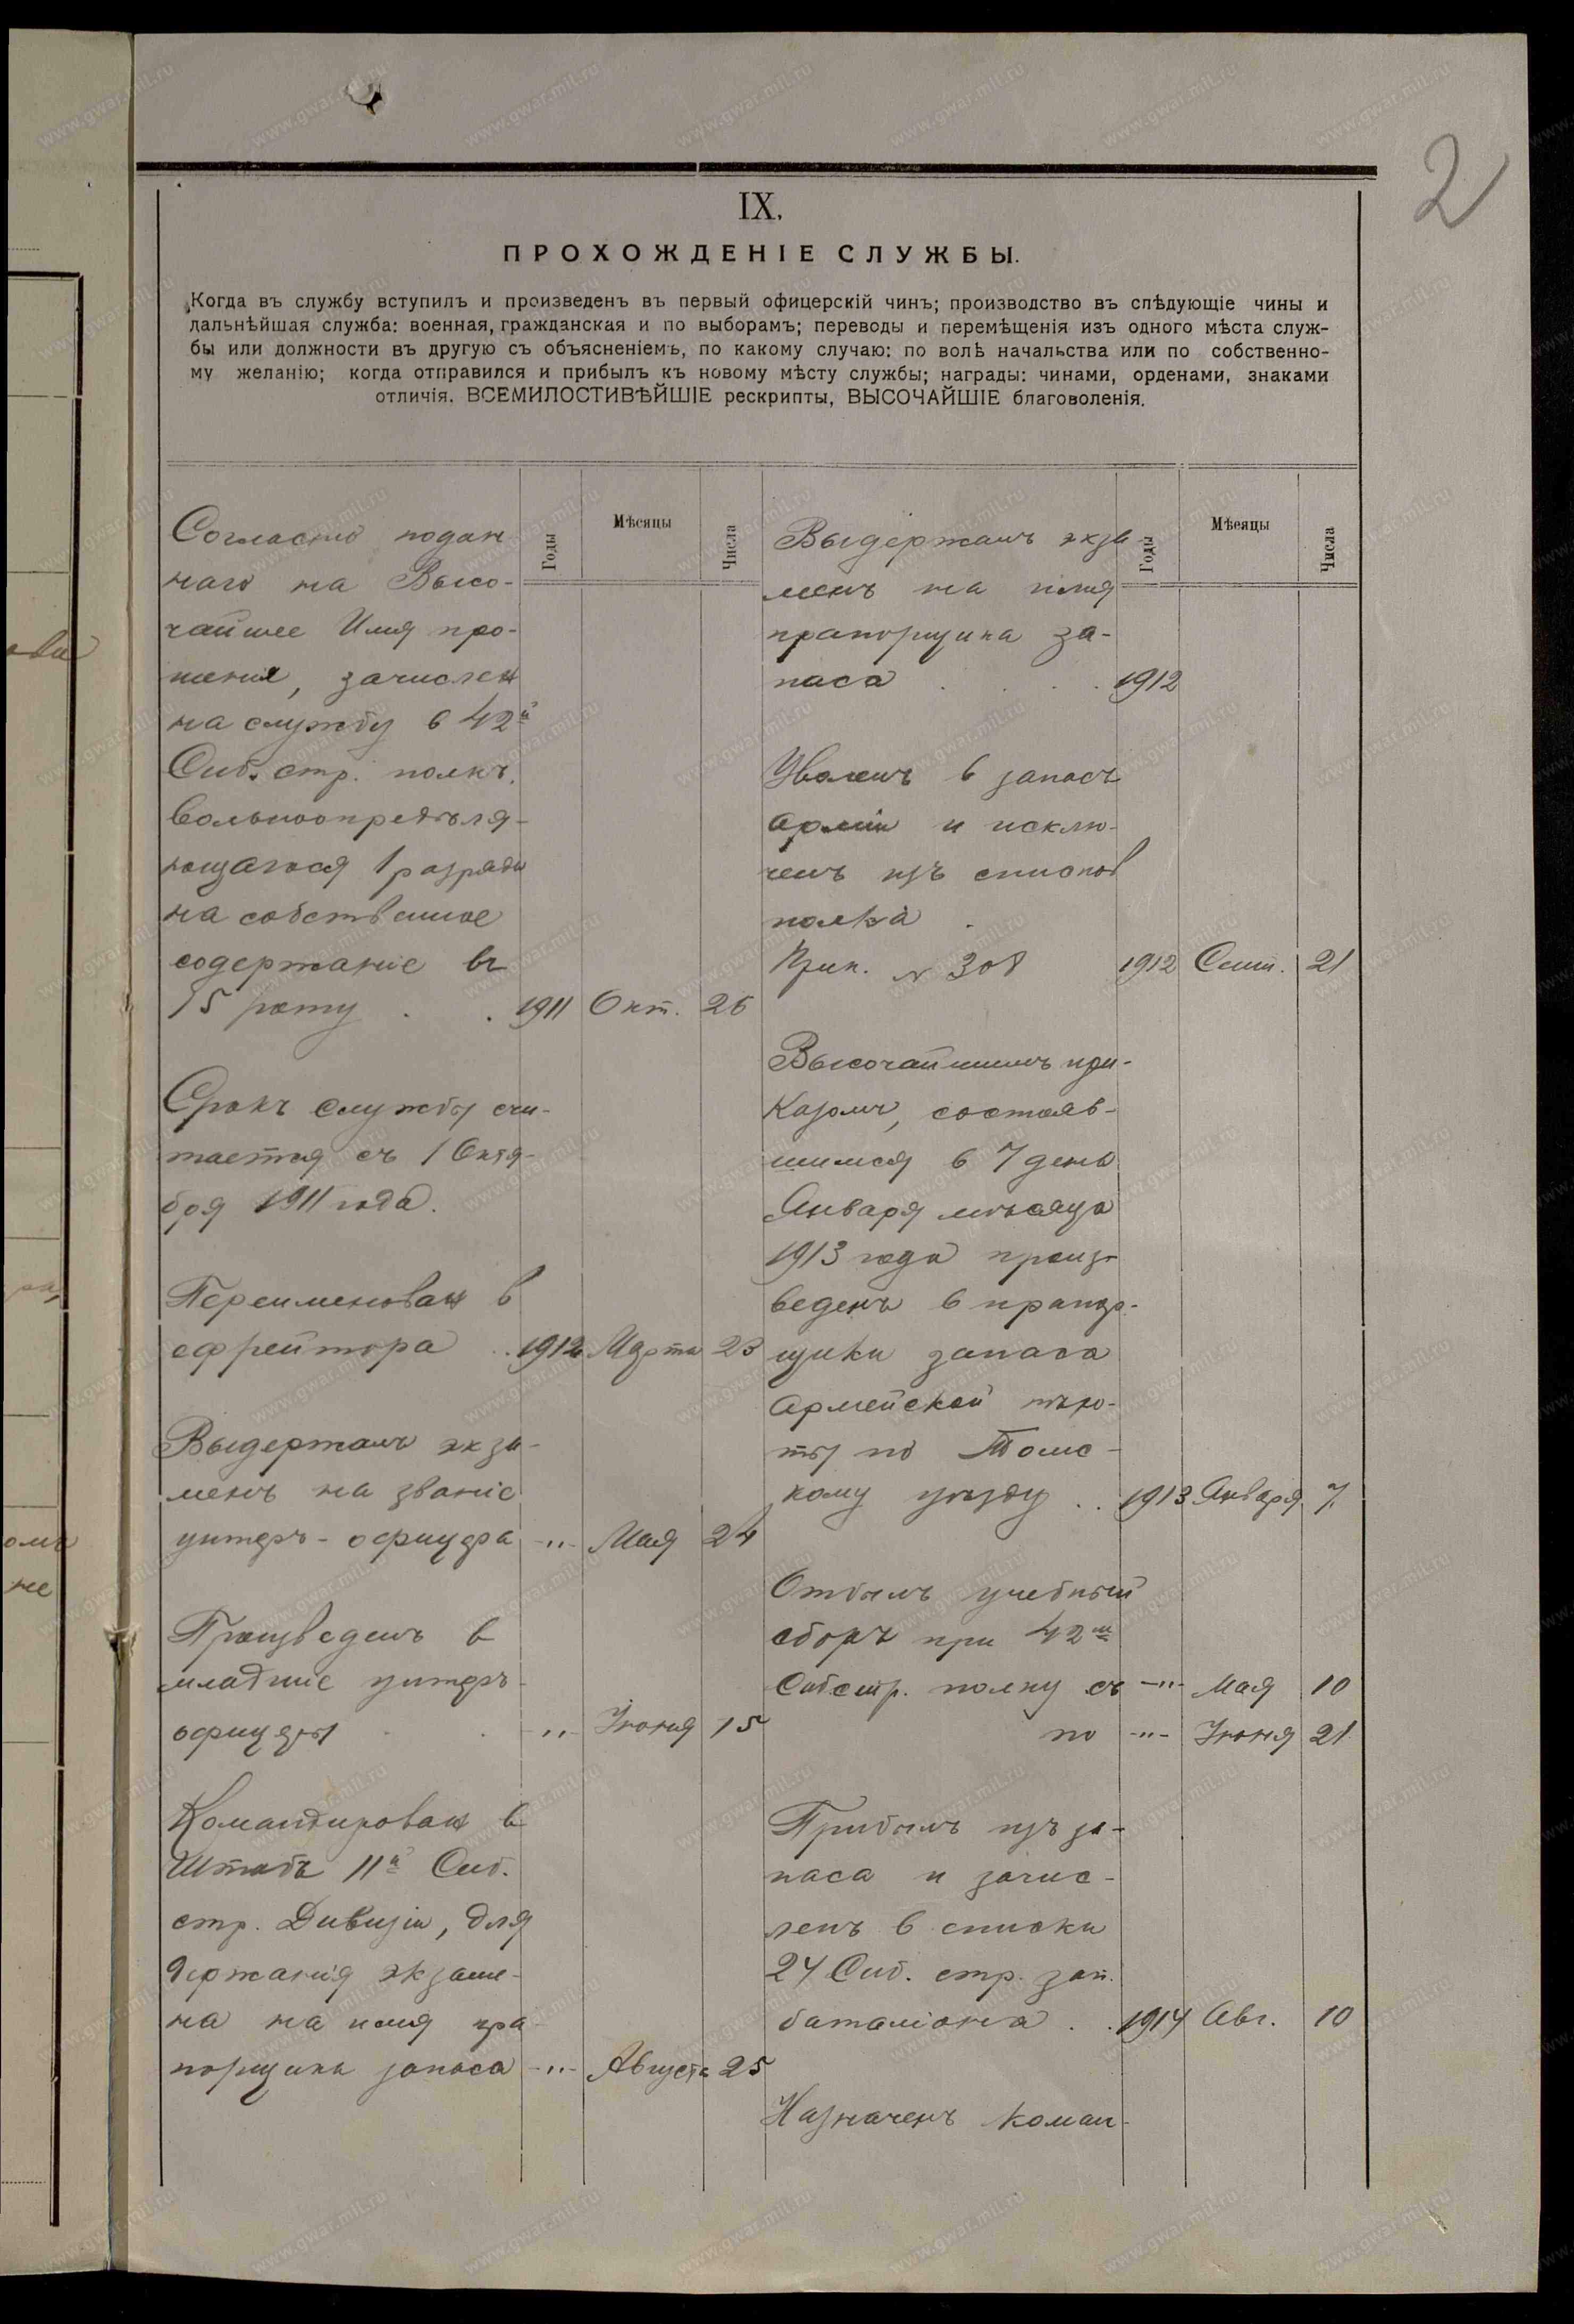 2
IX.
ПРОХОЖДЕНІЕ СЛУЖБЫ.
Когда въ службу вступилъ и произведенъ въ первый офицерскій чинъ; производство въ слѣдующіе чины и
дальнѣйшая служба: военная, гражданская и по выборамъ; переводы и перемѣщенія изъ одного мѣста служ-
бы или должности въ другую съ объясненіемъ, по какому случаю: по волѣ начальства или по собственно-
му желанію; когда отправился и прибылъ къ новому мѣсту службы; награды: чинами, орденами, знаками
отличія. ВСЕМИЛОСТИВѢЙШІЕ рескрипты, ВЫСОЧАЙШІЕ благоволенія.
Годы Мѣсяцы Числа
Согласно подан
наго на Высо-
чайшее Имя про-
шенія, зачислен
на службу в 42й
Сиб. стр. полкъ,
вольноопредѣля-
ющагося 1 разряда
на собственное
содержаніе въ
15 роту . . 1911 Окт. 26
Срокъ службы счи-
тается съ 1 Октя-
бря 1911 года.
Переименован в
ефрейтора . . 1912 Марта 23
Выдержалъ экза-
менъ на званіе
унтеръ-офицера -"- Мая 24
Произведенъ в
младшіе унтеръ-
офицеры . . -"- Іюня 15
Командирован в
Штабъ 11й Сиб.
стр. Дивизіи, для
держанія экзаме-
на на имя пра-
порщика запаса -"- Августа 25
Годы Мѣсяцы Числа
Выдержалъ экза-
менъ на имя
прапорщика за-
паса . . . . 1912
Уволенъ в запасъ
арміи и исклю-
ченъ изъ списков
полка .
Прик. № 308 1912 Сент. 21
Высочайшимъ при-
казомъ, состояв-
шимся в 7 день
Января мѣсяца
1913 года произ-
веденъ в прапор-
щики запаса
Армейской пѣхо-
ты по Томс-
кому уѣзду . . 1913 Января 7.
Отбылъ учебный
сборъ при 42м
Сиб стр. полку съ -"- Мая 10
по -"- Іюня 21
Прибылъ изъ за-
паса и зачис-
ленъ в списки
24 Сиб. стр. зап.
баталіона . . 1914 Авг. 10
Назначенъ коман-